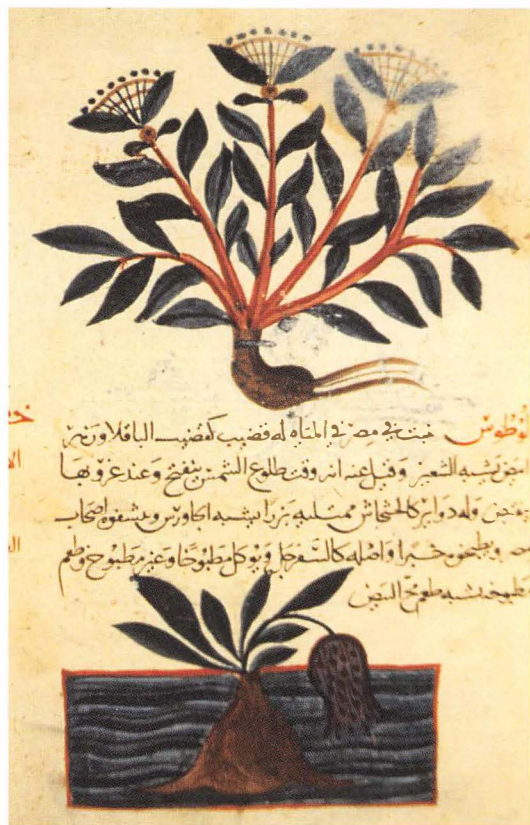 لوطوس ينبت في مصر في المياه له قضيب كقضيب الباقلا وزهر
ابيض يشبه الشعير وقيل عنه انه وقت طلوع الشمس ينفتح وعند غروبها
وله دواير كالخشخاش ممتليه بزرا يشبه الجاورس ويشفوه اصحاب
مصر ويطبخوه خبزا واصله كالسفرجل ويوكل مطبوخا وغير مطبوخ وطعم
مطبوخه يشبه طعم مح البيض